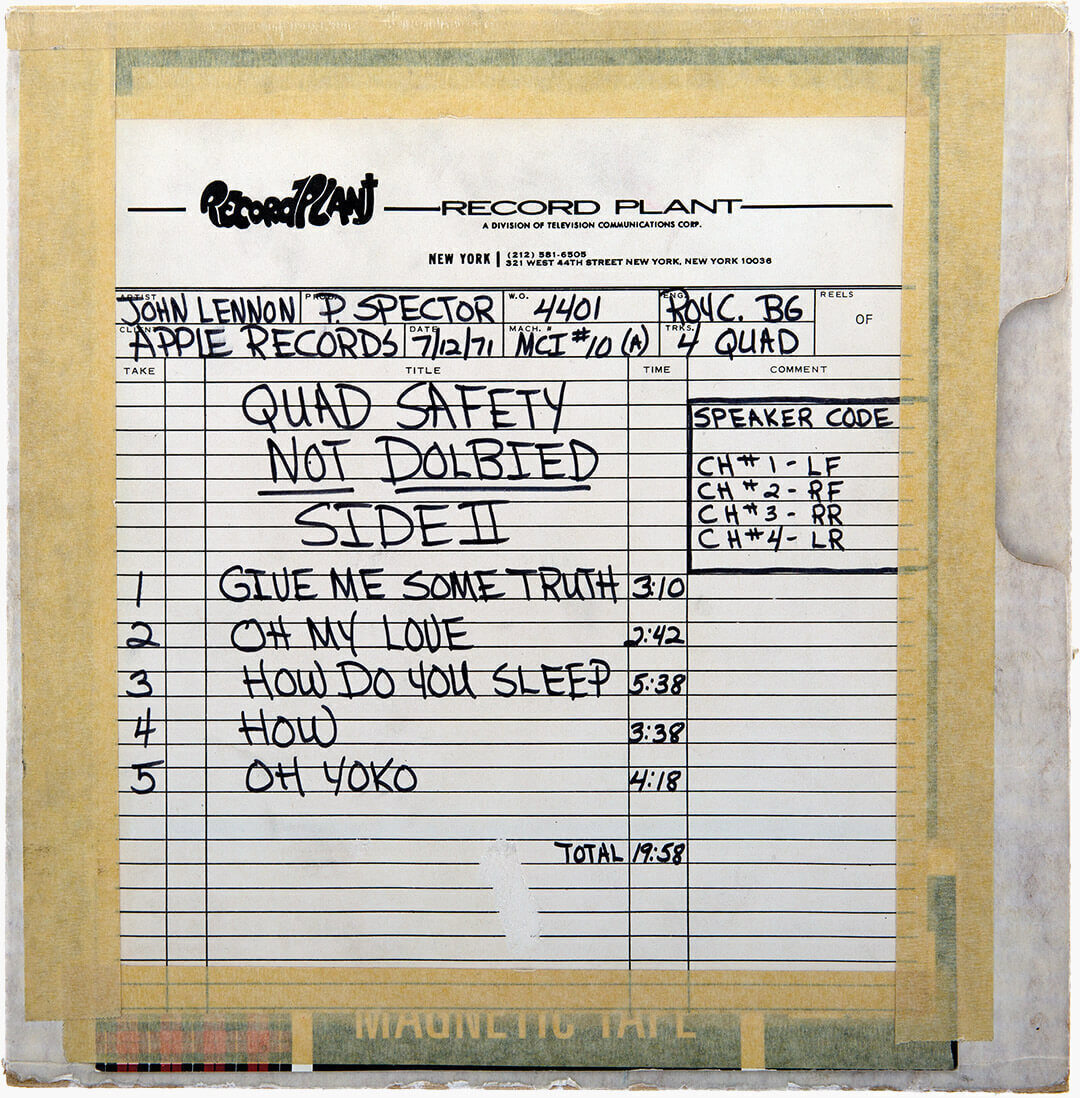 RECORD PLANT RECORD PLANT
A DIVISION OF TELEVISION COMMUNICATIONS CORP.
NEW YORK | (212) 581-6505
321 WEST 44TH STREET NEW YORK, NEW YORK 10036
ARTIST PROD. W.O. ENG. REELS
JOHN LENNON P. SPECTOR 4401 ROY C. BG OF
CLIENT DATE MACH. # TRKS.
APPLE RECORDS 7/12/71 MCI #10 (A) 4 QUAD
TAKE TITLE TIME COMMENT
QUAD SAFETY
NOT DOLBIED
SIDE II
SPEAKER CODE
CH # 1 - LF
CH # 2 - RF
CH # 3 - RR
CH # 4 - LR
1 GIVE ME SOME TRUTH 3:10
2 OH MY LOVE 2:42
3 HOW DO YOU SLEEP 5:38
4 HOW 3:38
5 OH YOKO 4:18
TOTAL 19:58
MAGNETIC TAPE